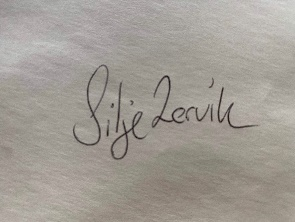 Silje Lervik